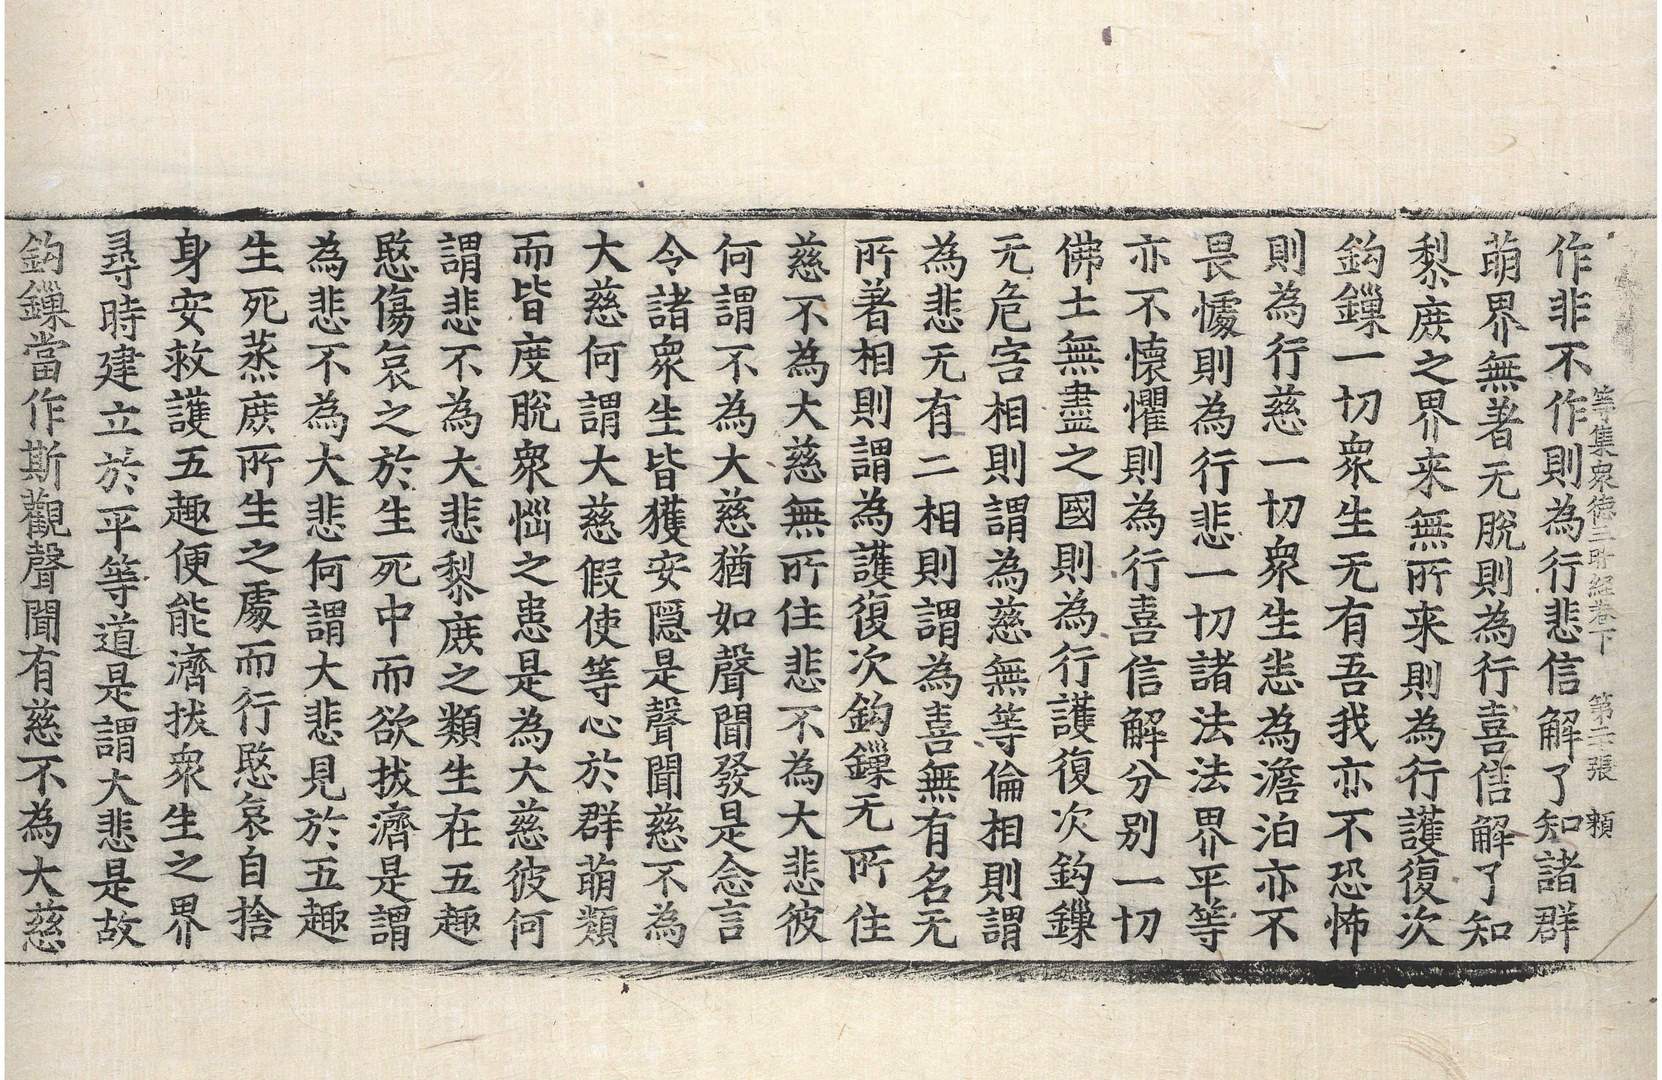 等集衆德三昧經卷下　第二張　賴
作非不作則為行悲信解了知諸群
萌界無著无脫則為行喜信解了知
黎庶之界来無所来則為行護復次
鈎鏁一切衆生无有吾我亦不恐怖
則為行慈一切衆生恚為澹泊亦不
畏懅則為行悲一切諸法法界平等
亦不懷懼則為行喜信解分別一切
佛土無盡之國則為行護復次鈎鏁
无危害相則謂為慈無等倫相則謂
為悲无有二相則謂為喜無有名无
所著相則謂為護復次鈎鏁无所住
慈不為大慈無所住悲不為大悲彼
何謂不為大慈猶如聲聞發是念言
令諸衆生皆獲安隠是聲聞慈不為
大慈何謂大慈假使等心於群萌類
而皆度脫衆惱之患是為大慈彼何
謂悲不為大悲黎庶之類生在五趣
愍傷哀之於生死中而欲拔濟是謂
為悲不為大悲何謂大悲見於五趣
生死蒸庶所生之處而行愍哀自捨
身安救護五趣便能濟拔衆生之界
尋時建立於平等道是謂大悲是故
鈎鏁當作斯觀聲聞有慈不為大慈